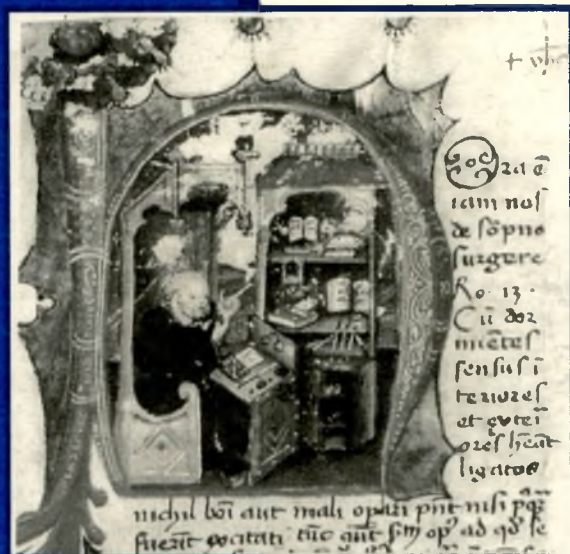 Hora ē
iam nos
de sōpno
surgere
Ro. 13.
Cū dor
miētes
sensus ī
teriores
et exteri
ores hēant
ligatos
nichil boī aut mali opari pnt nisi
fuerīt excitati tūc ad